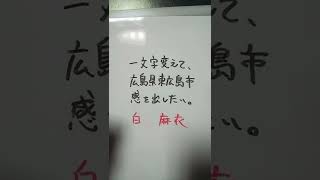 一文字変えて、
広島県東広島市
感を出したい。
白 麻衣